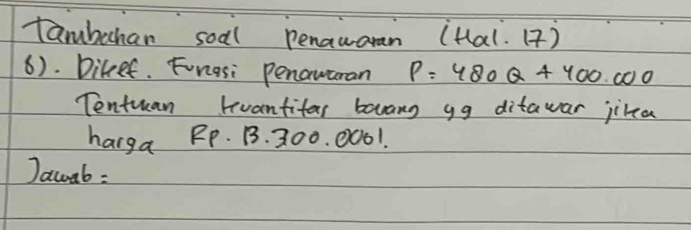 Tambahan soal Penawaran (Hal. 17)
6). Diket. Fungsi Penawaran P = 480 Q + 400.000
Tentukan kuantitas barang yg ditawar jika
harga Rp. 13.300.000!.
Jawab =